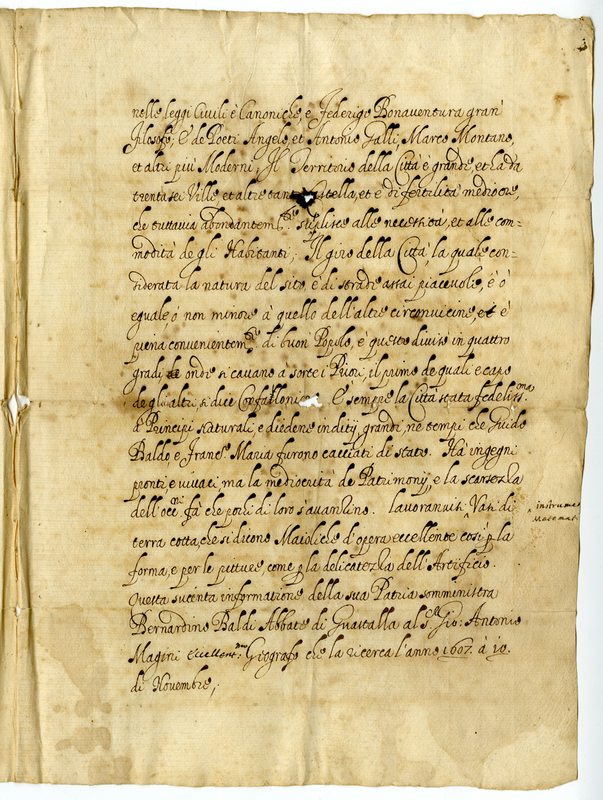 nelle leggi Civili è Canoniche, e Federigo Bonaventura gran
Filosofo; E de Poeti Angelo, et Antonio Galli, Marco Montano,
et altri più Moderni; Il Territorio della Città è grande, et ha da
trentasei Ville et altre tan Castella, et è di fertilità mediocre,
che tuttavia abondantem.te suplisce alle necessità, et alle com=
modità de gli Habitanti; Il giro della Città, la quale con=
siderata la natura del sito, è di strade assai piacevole, è ò
eguale ò non minore à quello dell'altre circonvicine, et è
piena convenientem.te di buon Popolo, e questo diviso in quattro
gradi de onde si cavano a sorte i Priori, il primo de quali e capo
de gli altri, si dice Confalloni E sempre la Città stata fedeliss.ma
a Principi Naturali, e diedene inditij grandi, ne tempi che Guido
Baldo e Franc.o Maria furono cacciati di stato. Hà ingegni
pronti e vivaci ma la mediocrità de Patrimonij, e la scarsezza
dell'occ.ni fà che pochi di loro s'avanzino. lavoranuisi Vasi di
instrume
Matemat
terra cotta, che si dicono Maioliche d'opera eccellente così p la
forma, e per le pitture, come p la delicatezza dell'Artificio.
Questa sucinta informatione della sua Patria somministra
Bernardino Baldi Abbate di Guastalla al S.r Gio: Antonio
Magini eccellent.mo Geografo che la ricerca l'anno 1607. à 10.
di Novembre,